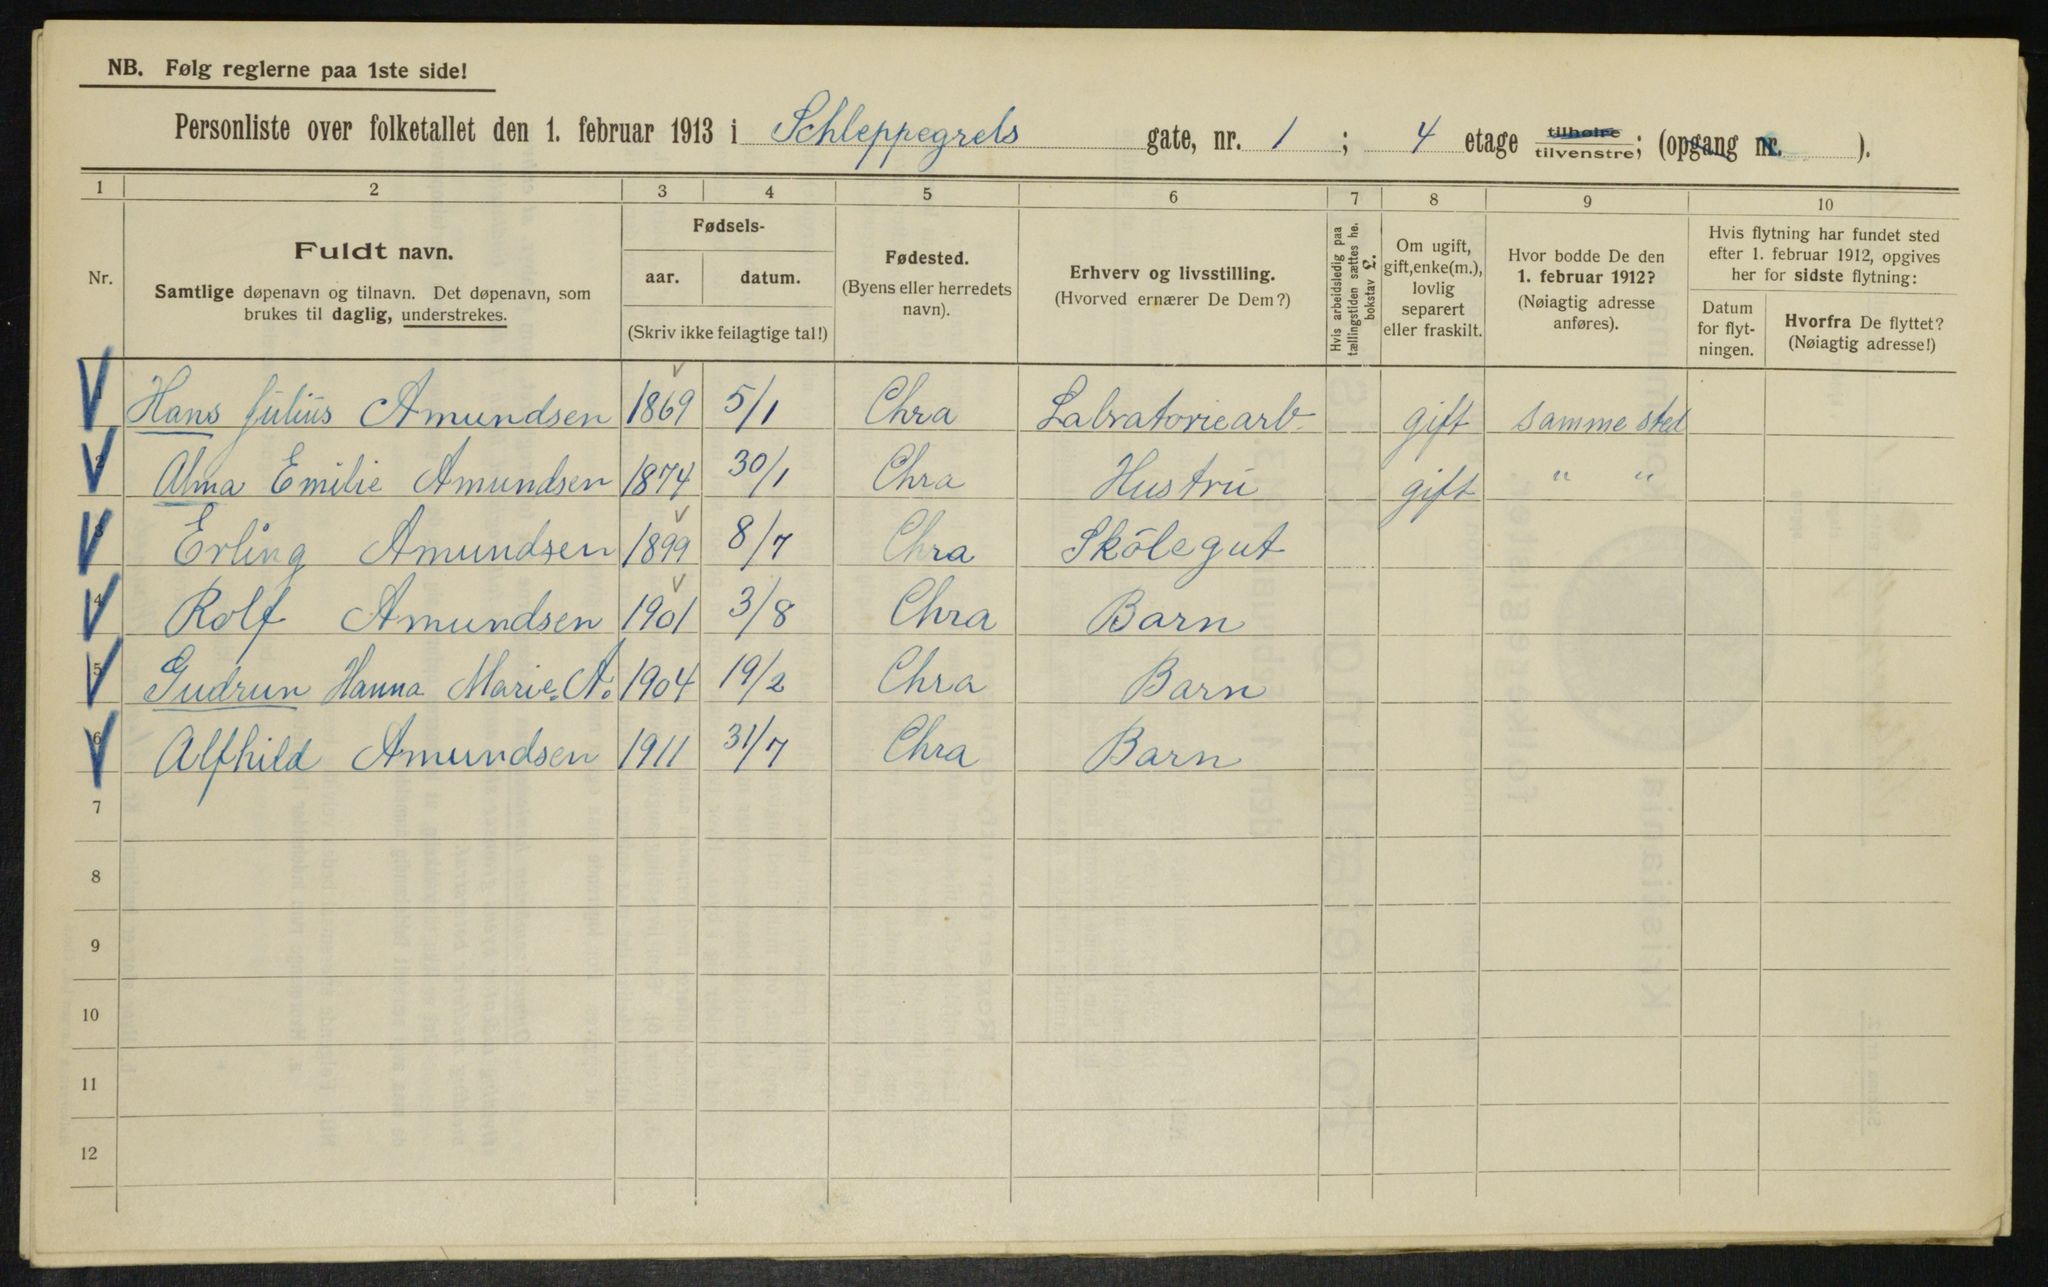 NB. Følg reglerne paa 1ste side!
Personliste over folketallet den 1. februar 1913 i Schleppegrels gate, nr. 1; 4 etage tilhøire tilvenstre; (opgang nr. ).
1 2 3 4 5 6 7 8 9 10
Nr.
Fuldt navn.
Samtlige døpenavn og tilnavn. Det døpenavn, som
brukes til daglig, understrekes.
Fødsels-
aar. datum.
(Skriv ikke feilagtige tal!)
Fødested.
(Byens eller herredets
navn).
Erhverv og livsstilling.
(Hvorved ernærer De Dem?)
Hvis arbeidsledig paa
tællingstiden sættes he.
bokstav £.
Om ugift,
gift, enke(m.),
lovlig
separert
eller fraskilt.
Hvor bodde De den
1. februar 1912?
(Nøiagtig adresse
anføres).
Hvis flytning har fundet sted
efter 1. februar 1912, opgives
her for sidste flytning:
Datum
for flyt-
ningen.
Hvorfra De flyttet?
(Nøiagtig adresse!)
Hans Julius Amundsen 1869 5/1 Chra Labratoriearb gift samme sted
2 Alma Emilie Amundsen 1874 30/1 Chra Hustru gift " "
3 Erling Amundsen 1899 8/7 Chra Skolegut
4 Rolf Amundsen 1901 3/8 Chra Barn
5 Gudrun Hanna Marie. A. 1904 19/2 Chra Barn
6 Alfhild Amundsen 1911 31/7 Chra Barn
7
8
9
10
11
12